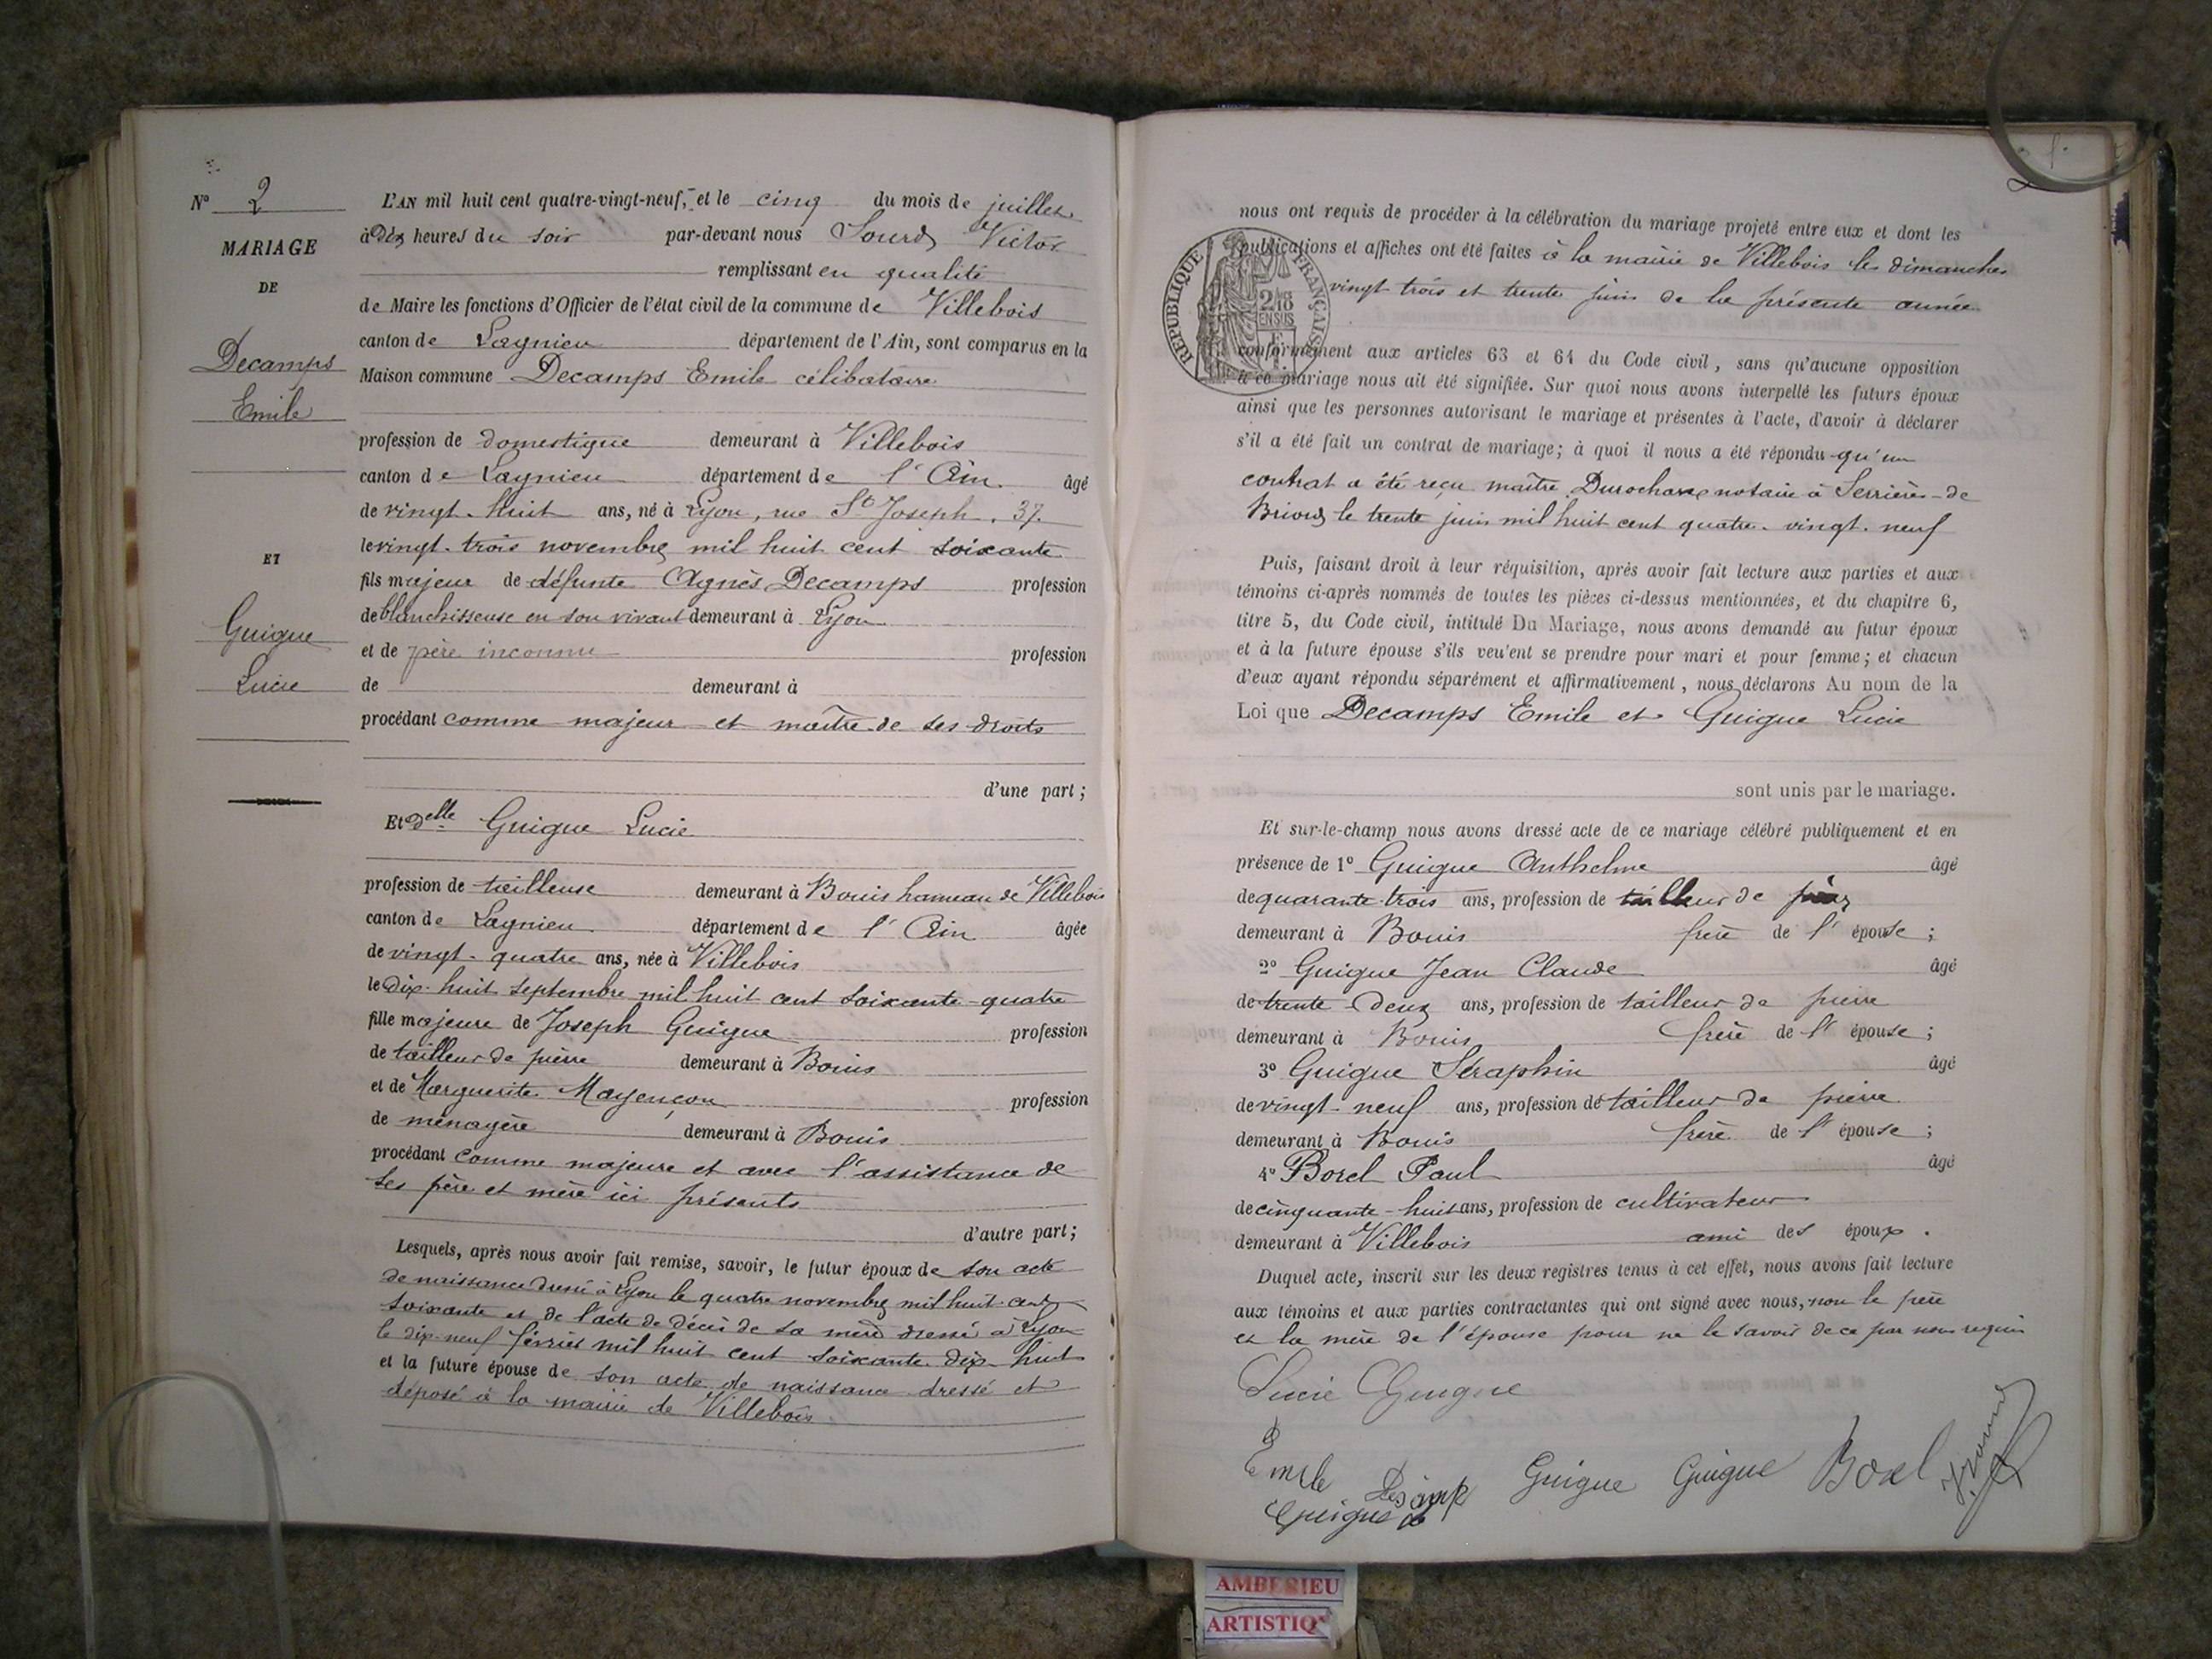 N° 2
MARIAGE
DE
Decamps
Emile
ET
Guigue
Lucie
L'AN mil huit cent quatre-vingt-neuf, et le cinq du mois de juillet
à Dix heures du soir par-devant nous Sourd Victor
remplissant en qualité
de Maire les fonctions d'Officier de l'état civil de la commune de Villebois
canton de Lagnieu département de l'Ain, sont comparus en la
Maison commune Decamps Emile célibataire
profession de domestique demeurant à Villebois
canton de Lagnieu département de l'Ain âgé
de vingt-huit ans, né à Lyon, rue St Joseph, 37.
le vingt-trois novembre mil huit cent soixante
fils majeur de défunte Agnès Decamps profession
de blanchisseuse en son vivant demeurant à Lyon
et de père inconnu profession
de demeurant à
procédant comme majeur et maître de ses droits
d'une part ;
Et Delle Guigue Lucie
profession de tailleuse demeurant à Bouis hameau de Villebois
canton de Lagnieu département de l'Ain âgée
de vingt-quatre ans, née à Villebois
le dix-huit septembre mil huit cent soixante-quatre
fille majeure de Joseph Guigue profession
de tailleur de pierre demeurant à Bouis
et de Marguerite Mayençon profession
de ménagère demeurant à Bouis
procédant comme majeure et avec l'assistance de
ses père et mère ici présents
d'autre part ;
Lesquels, après nous avoir fait remise, savoir, le futur époux de son acte
de naissance dressé à Lyon le quatre novembre mil huit cent
soixante et de l'acte de décès de sa mère dressé à Lyon
le dix-neuf février mil huit cent soixante-dix-huit
et la future épouse de son acte de naissance dressé et
déposé à la mairie de Villebois
nous ont requis de procéder à la célébration du mariage projeté entre eux et dont les
publications et affiches ont été faites à la mairie de Villebois les dimanches
vingt trois et trente juin de la présente année
RÉPUBLIQUE FRANÇAISE
EN SUS
conformément aux articles 63 et 64 du Code civil, sans qu'aucune opposition
à ce mariage nous ait été signifiée. Sur quoi nous avons interpellé les futurs époux
ainsi que les personnes autorisant le mariage et présentes à l'acte, d'avoir à déclarer
s'il a été fait un contrat de mariage ; à quoi il nous a été répondu qu'un
contrat a été reçu maître notaire à Serrières-de
Briord le trente juin mil huit cent quatre-vingt-neuf
Puis, faisant droit à leur réquisition, après avoir fait lecture aux parties et aux
témoins ci-après nommés de toutes les pièces ci-dessus mentionnées, et du chapitre 6,
titre 5, du Code civil, intitulé Du Mariage, nous avons demandé au futur époux
et à la future épouse s'ils veu'ent se prendre pour mari et pour femme ; et chacun
d'eux ayant répondu séparément et affirmativement, nous déclarons Au nom de la
Loi que Decamps Emile et Guigue Lucie
sont unis par le mariage.
Et sur-le-champ nous avons dressé acte de ce mariage célébré publiquement et en
présence de 1° Guigue Anthelme âgé
de quarante-trois ans, profession de tailleur de
demeurant à Bouis frère de l'épouse ;
2° Guigue Jean Claude âgé
de trente-deux ans, profession de tailleur de pierre
demeurant à Bouis frère de l'épouse ;
3° Guigue Séraphin âgé
de vingt-neuf ans, profession de tailleur de pierre
demeurant à Bouis frère de l'épouse ;
4° Borel Paul âgé
de cinquante-huit ans, profession de cultivateur
demeurant à Villebois ami des époux.
Duquel acte, inscrit sur les deux registres tenus à cet effet, nous avons fait lecture
aux témoins et aux parties contractantes qui ont signé avec nous, non le père
et la mère de l'épouse pour ne le savoir de ce par nous requis
Lucie Guigue
Emile Guigue Guigue Borel
Guigue
AMBERIEU
ARTISTIQ